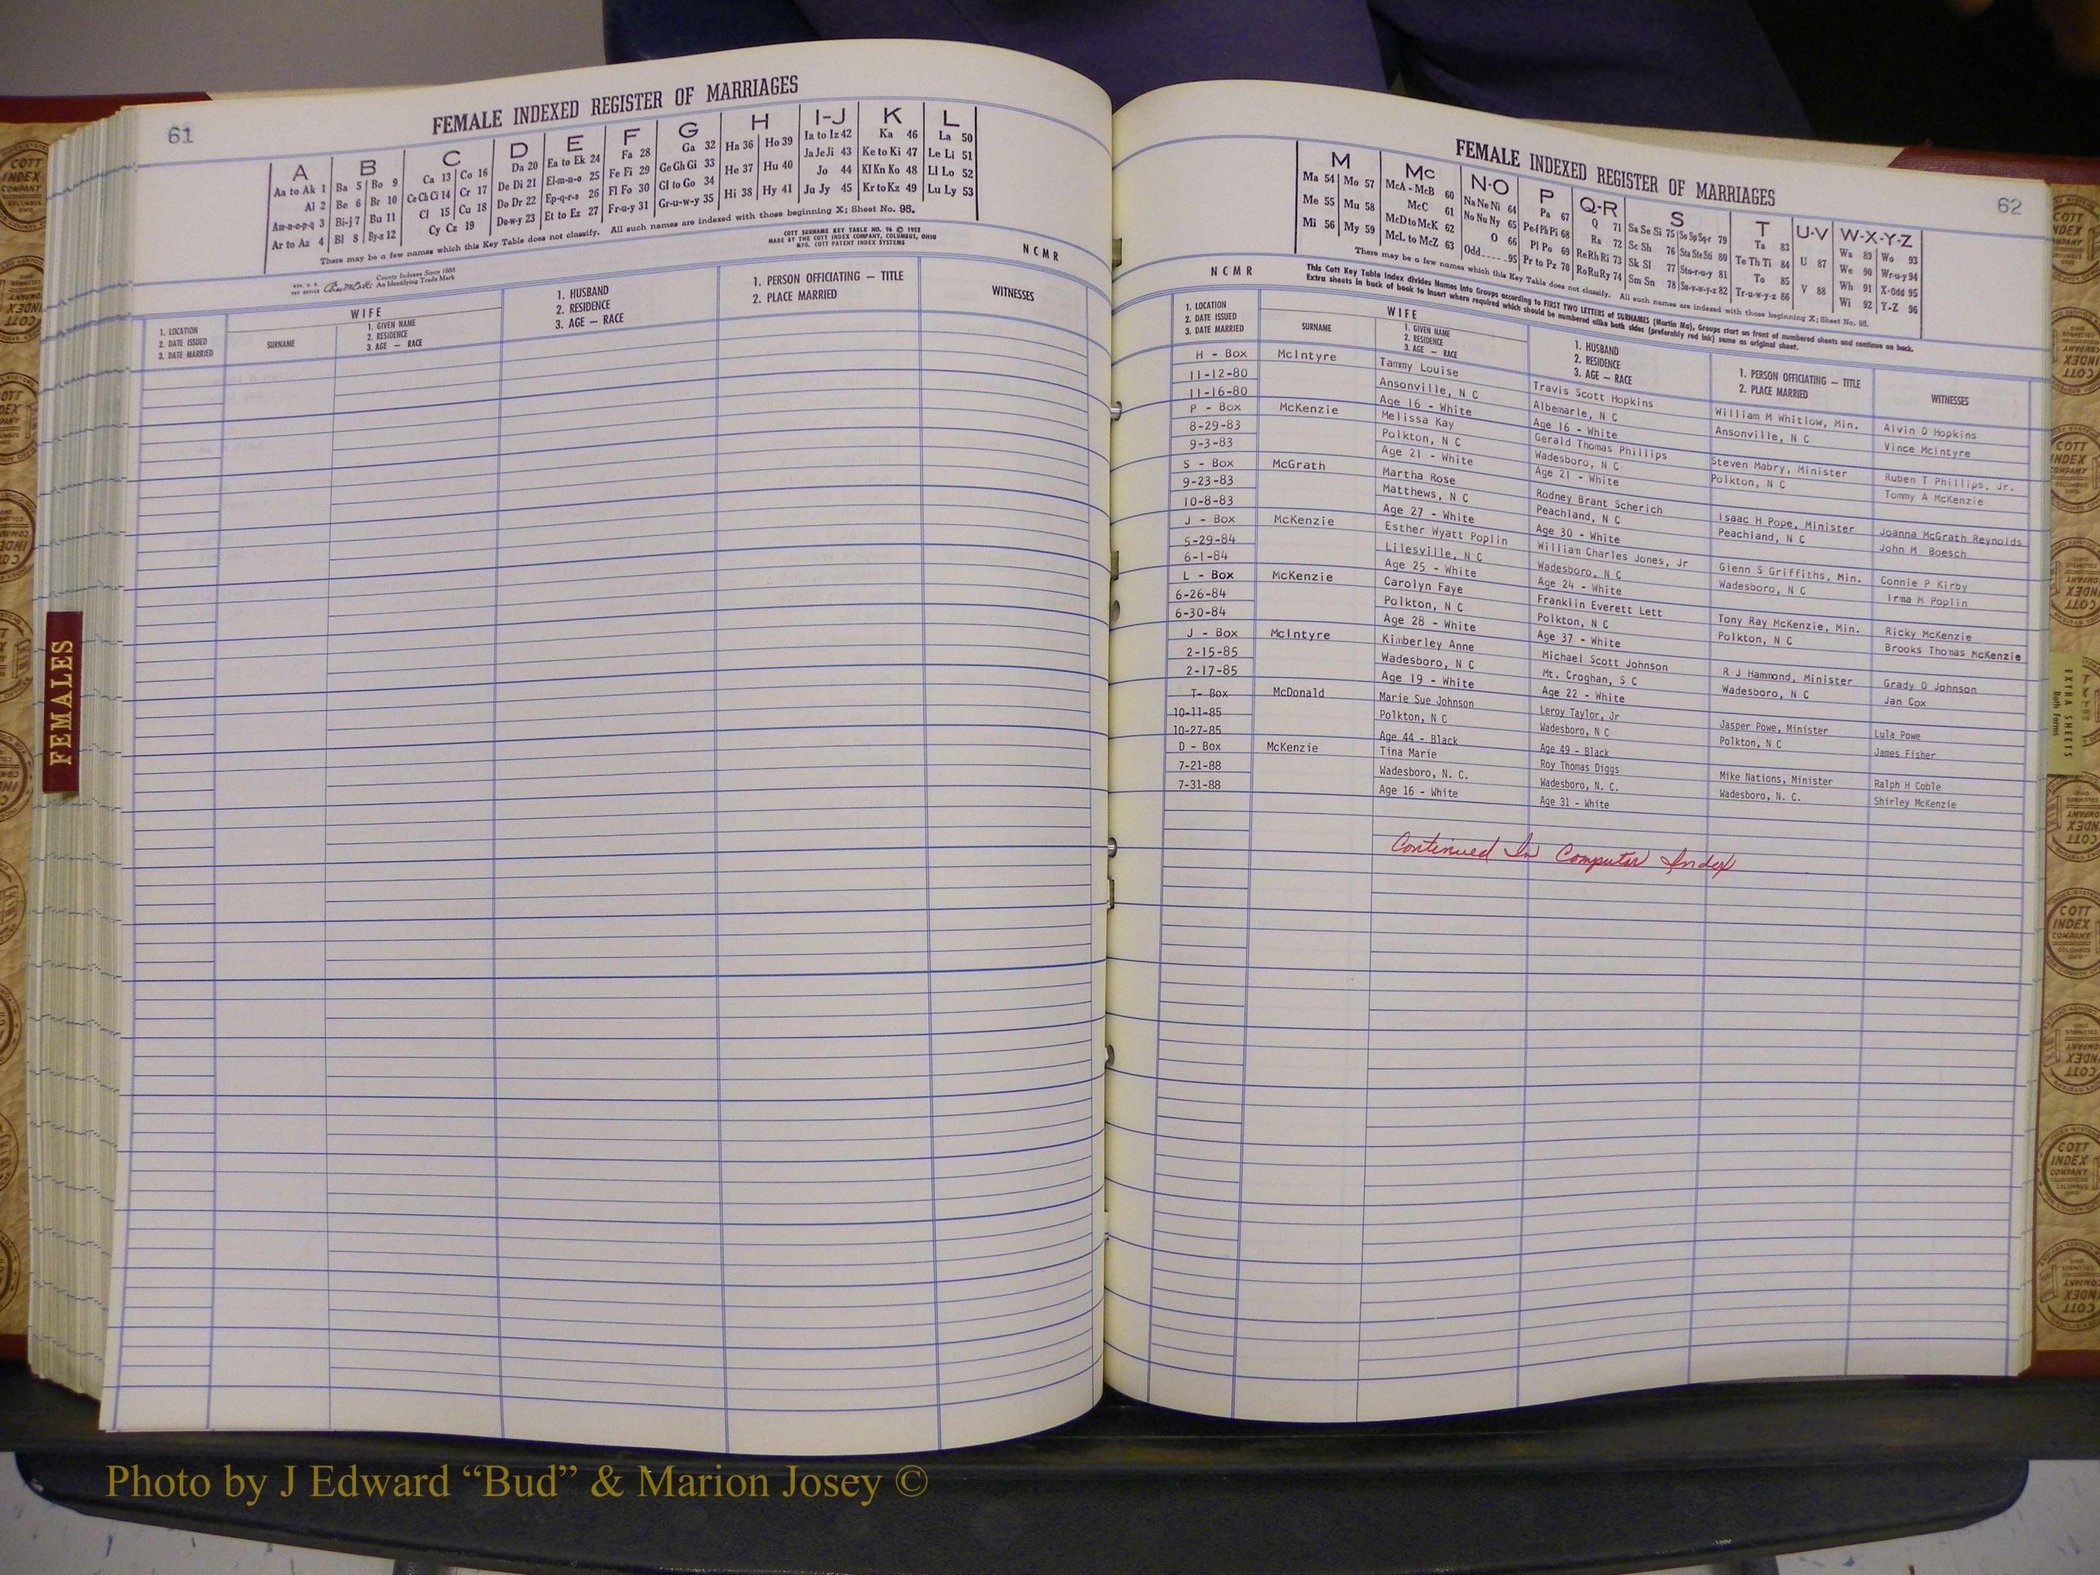 61
FEMALE INDEXED REGISTER OF MARRIAGES
A B C D E F G H I-J K L
Aa to Ak 1 Ba 5 Bo 9 Ca 13 Co 16 Da 20 Ea to Ek 24 Fa 28 Ga 32 Ha 36 Ho 39 Ia to Iz 42 Ka 46 La 50
Al 2 Be 6 Br 10 Ce Ch Ci 14 Cr 17 De Di 21 El-m-n-o 25 Fe Fi 29 Ge Gh Gi 33 He 37 Hu 40 Ja Je Ji 43 Ke to Ki 47 Le Li 51
Am-n-o-p-q 3 Bi-j 7 Bu 11 Cl 15 Cu 18 Do Dr 22 Ep-q-r-s 26 Fl Fo 30 Gl to Go 34 Hi 38 Hy 41 Jo 44 Kl Kn Ko 48 Ll Lo 52
Ar to Az 4 Bl 8 By-z 12 Cy Cz 19 Du-w-y 23 Et to Ez 27 Fr-u-y 31 Gr-u-w-y 35 Ju Jy 45 Kr to Kz 49 Lu Ly 53
There may be a few names which this Key Table does not classify. All such names are indexed with those beginning X; Sheet No. 95.
COTT SURNAME KEY TABLE NO. 96 © 1952
MADE BY THE COTT INDEX COMPANY, COLUMBUS, OHIO
MFG. COTT PATENT INDEX SYSTEMS
N C M R
County Indexes Since 1888
An Identifying Trade Mark
1. LOCATION
2. DATE ISSUED
3. DATE MARRIED
WIFE
SURNAME
1. GIVEN NAME
2. RESIDENCE
3. AGE — RACE
1. HUSBAND
2. RESIDENCE
3. AGE — RACE
1. PERSON OFFICIATING — TITLE
2. PLACE MARRIED
WITNESSES
FEMALES
62
FEMALE INDEXED REGISTER OF MARRIAGES
M Mc N-O P Q-R S T U-V W-X-Y-Z
Ma 54 Mo 57 McA - McB 60 Na Ne Ni 64 Pa 67 Q 71 Sa Se Si 75 So Sp Sq-r 79 Ta 83 U 87 Wa 89 Wo 93
Me 55 Mu 58 McC 61 No Nu Ny 65 Pe-f Ph Pi 68 Ra 72 Sc Sh 76 Sta Ste Sti 80 Te Th Ti 84 V 88 We 90 Wr-u-y 94
Mi 56 My 59 McD to McK 62 O 66 Pl Po 69 Re Rh Ri 73 Sk Sl 77 Sto-r-u-y 81 To 85 Wh 91 X-Odd 95
McL to McZ 63 Odd 95 Pr to Pz 70 Ro Ru Ry 74 Sm Sn 78 Su-v-w-y-z 82 Tr-u-w-y-z 86 Wi 92 Y-Z 96
There may be a few names which this Key Table does not classify. All such names are indexed with those beginning X; Sheet No. 95.
This Cott Key Table Index divides Names into Groups according to FIRST TWO LETTERS of SURNAMES (Martin Ma), Groups start on front of numbered sheets and continue on back.
Extra sheets in back of book to insert where required which should be numbered alike both sides (preferably red ink) same as original sheet.
N C M R
1. LOCATION
2. DATE ISSUED
3. DATE MARRIED
WIFE
SURNAME
1. GIVEN NAME
2. RESIDENCE
3. AGE — RACE
1. HUSBAND
2. RESIDENCE
3. AGE — RACE
1. PERSON OFFICIATING — TITLE
2. PLACE MARRIED
WITNESSES
H - Box McIntyre Tammy Louise Travis Scott Hopkins William M Whitlow, Min. Alvin D Hopkins
11-12-80 Ansonville, N C Albemarle, N C Ansonville, N C Vince McIntyre
11-16-80 Age 16 - White Age 16 - White
P - Box McKenzie Melissa Kay Gerald Thomas Phillips Steven Mabry, Minister Ruben T Phillips, Jr.
8-29-83 Polkton, N C Wadesboro, N C Polkton, N C Tommy A McKenzie
9-3-83 Age 21 - White Age 21 - White
S - Box McGrath Martha Rose Rodney Brant Scherich Isaac H Pope, Minister Joanna McGrath Reynolds
9-23-83 Matthews, N C Peachland, N C Peachland, N C John M. Boesch
10-8-83 Age 27 - White Age 30 - White
J - Box McKenzie Esther Wyatt Poplin William Charles Jones, Jr Glenn S Griffiths, Min. Connie P Kirby
5-29-84 Lilesville, N C Wadesboro, N C Wadesboro, N C Irma M Poplin
6-1-84 Age 25 - White Age 24 - White
L - Box McKenzie Carolyn Faye Franklin Everett Lett Tony Ray McKenzie, Min. Ricky McKenzie
6-26-84 Polkton, N C Polkton, N C Polkton, N C Brooks Thomas McKenzie
6-30-84 Age 28 - White Age 37 - White
J - Box McIntyre Kimberley Anne Michael Scott Johnson R J Hammond, Minister Grady O Johnson
2-15-85 Wadesboro, N C Mt. Croghan, S C Wadesboro, N C Jan Cox
2-17-85 Age 19 - White Age 22 - White
T- Box McDonald Marie Sue Johnson Leroy Taylor, Jr Jasper Powe, Minister Lula Powe
10-11-85 Polkton, N C Wadesboro, N C Polkton, N C James Fisher
10-27-85 Age 44 - Black Age 49 - Black
D - Box McKenzie Tina Marie Roy Thomas Diggs Mike Nations, Minister Ralph H Coble
7-21-88 Wadesboro, N. C. Wadesboro, N. C. Wadesboro, N. C. Shirley McKenzie
7-31-88 Age 16 - White Age 31 - White
Continued In Computer Index
EXTRA SHEETS
Both Forms
COTT
INDEX
COMPANY
COLUMBUS
OHIO
Photo by J Edward “Bud” & Marion Josey ©